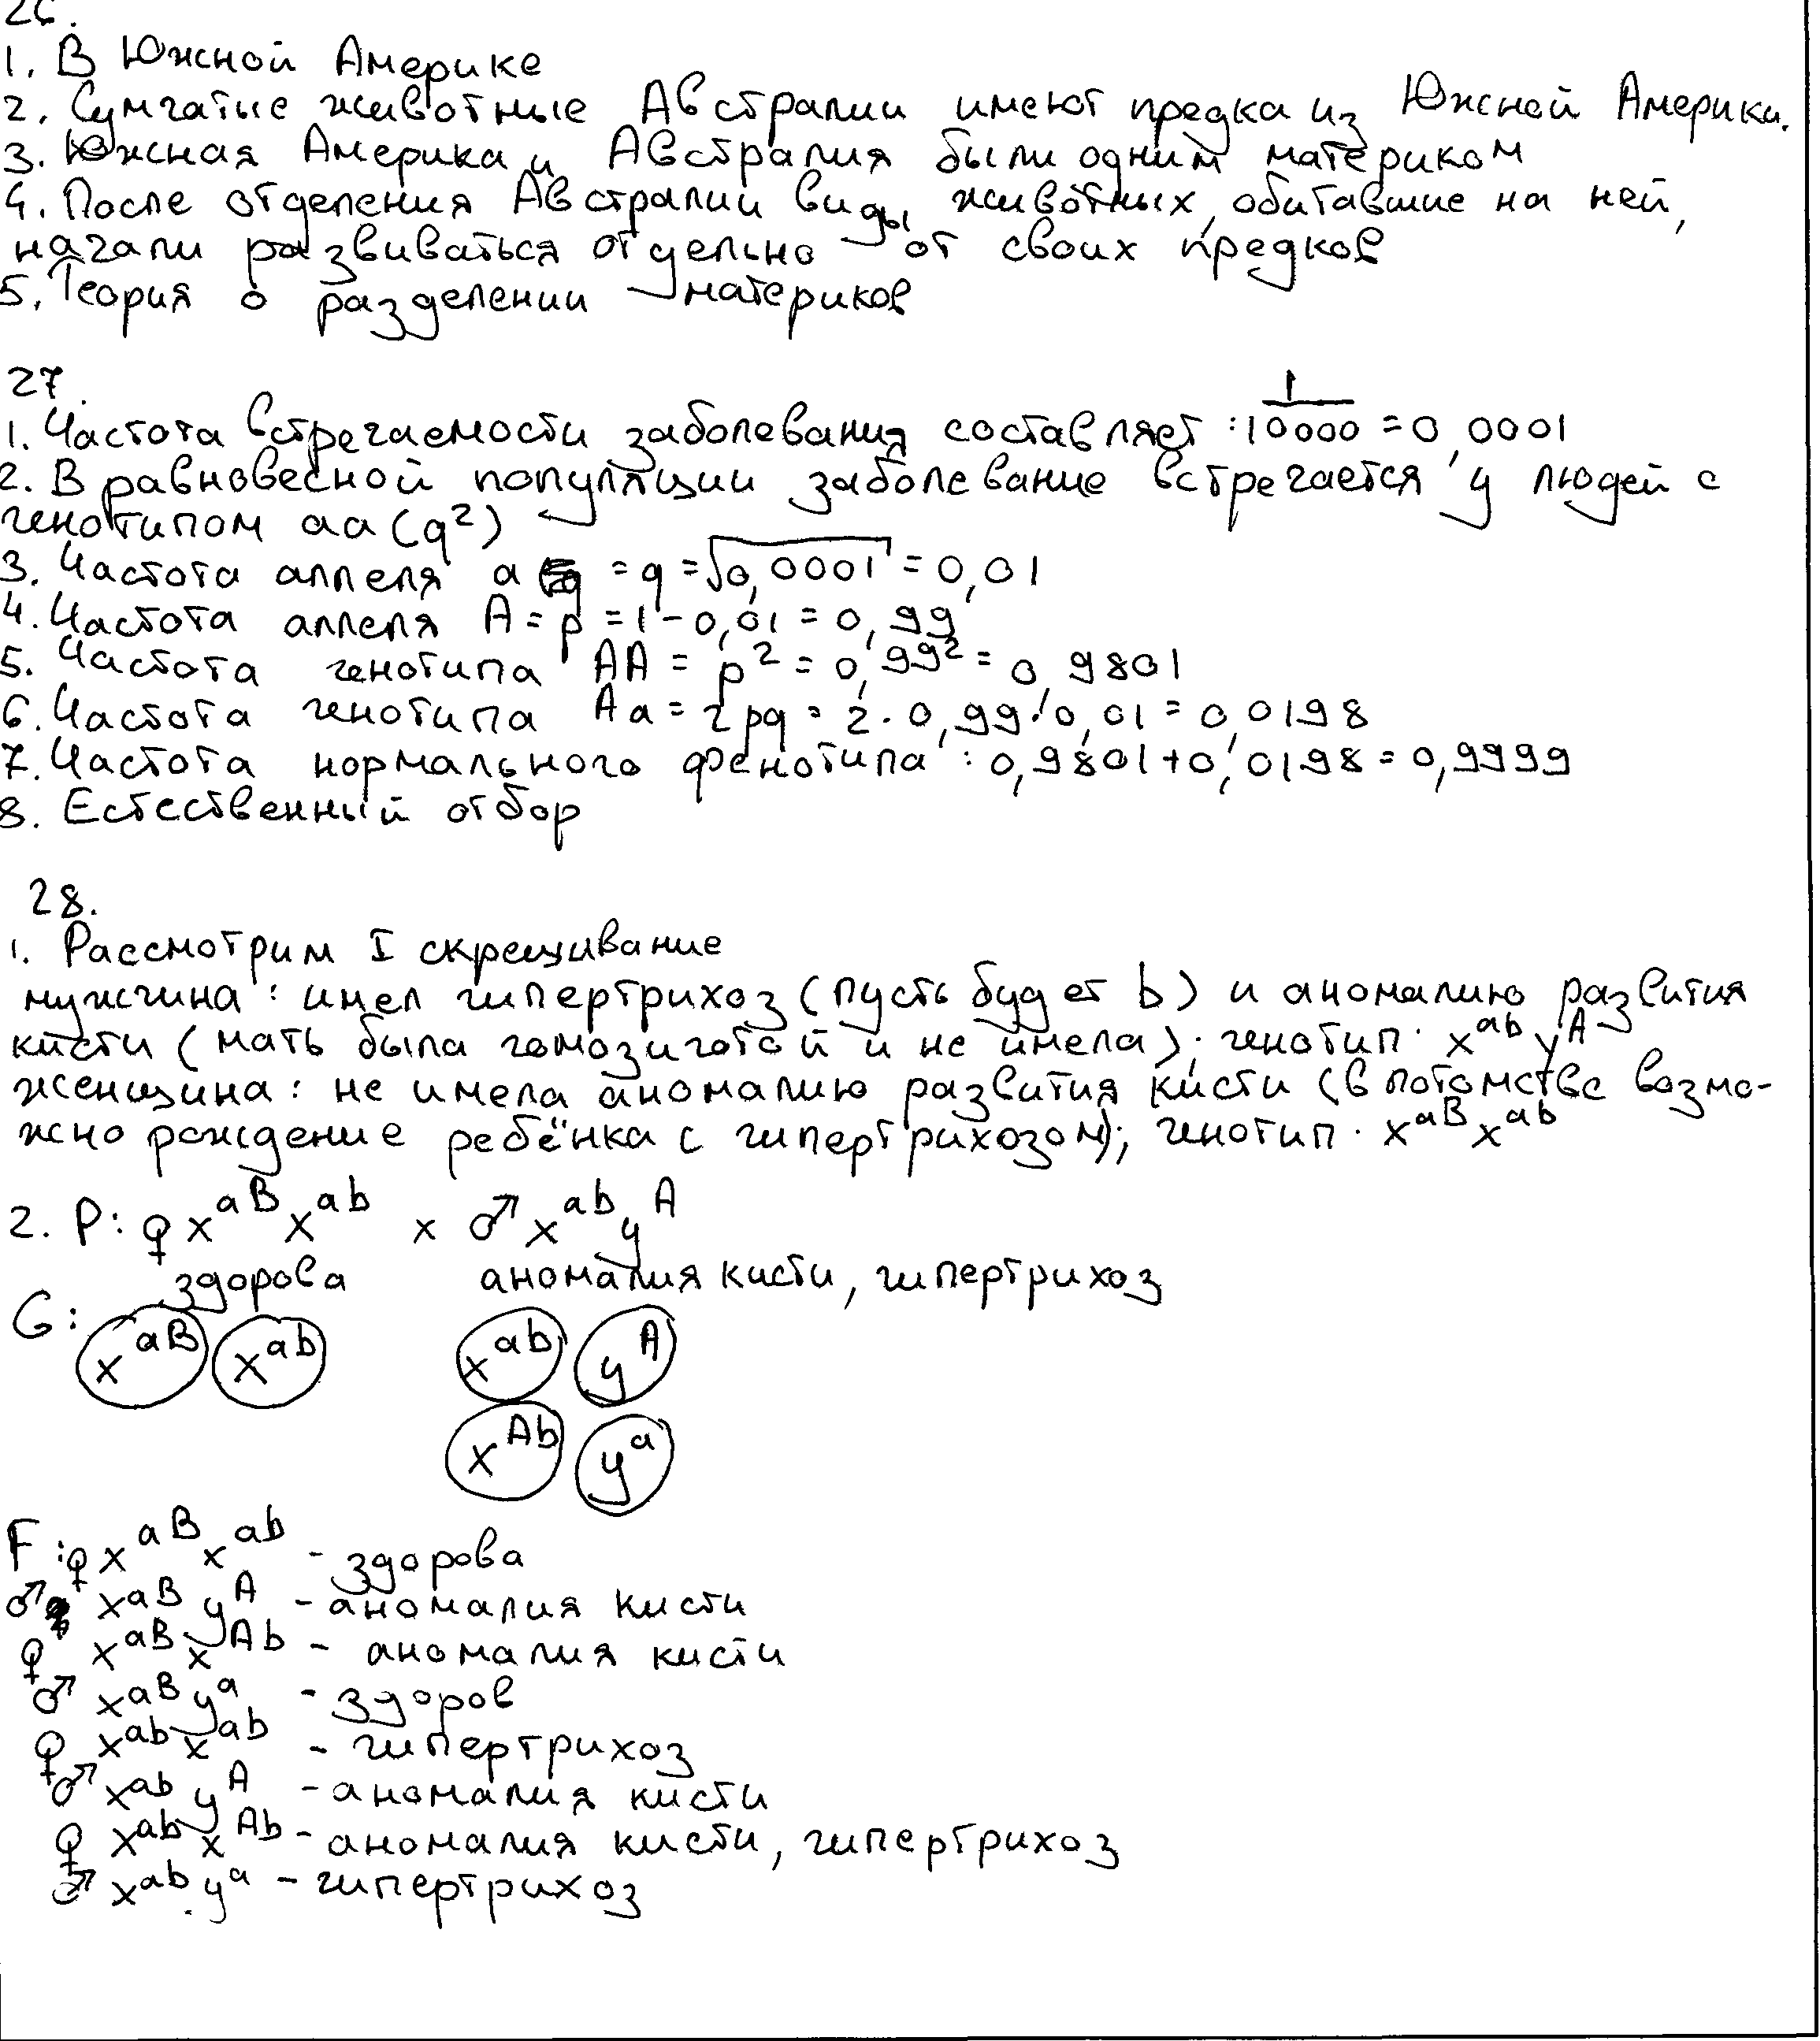 26.
1. В Южной Америке
2. Сумчатые животные Австралии имеют предка из Южной Америки.
3. Южная Америка и Австралия были одним материком
4. После отделения Австралии виды животных, обитавшие на ней,
начали развиваться отдельно от своих предков
5. Теория о разделении материков
27.
1. Частота встречаемости заболевания составляет: 1/10000 = 0,0001
2. В равновесной популяции заболевание встречается у людей с
генотипом aa (q²)
3. Частота аллеля a = q = √0,0001 = 0,01
4. Частота аллеля A = p = 1 - 0,01 = 0,99
5. Частота генотипа AA = p² = 0,99² = 0,9801
6. Частота генотипа Aa = 2pq = 2·0,99·0,01 = 0,0198
7. Частота нормального фенотипа: 0,9801+0,0198 = 0,9999
8. Естественный отбор
28.
1. Рассмотрим I скрещивание
мужчина: имел гипертрихоз (пусть будет b) и аномалию развития
кисти (мать была гомозиготой и не имела); генотип: x^ab y^A
женщина: не имела аномалию развития кисти (в потомстве возмо-
жно рождение ребёнка с гипертрихозом); генотип: x^aB x^ab
2. P: ♀ x^aB x^ab x ♂ x^ab y^A
здорова аномалия кисти, гипертрихоз
G: x^aB x^ab x^ab y^A
x^Ab y^a
F: ♀ x^aB x^ab - здорова
♂ x^aB y^A - аномалия кисти
♀ x^aB x^Ab - аномалия кисти
♂ x^aB y^a - здоров
♀ x^ab x^ab - гипертрихоз
♂ x^ab y^A - аномалия кисти
♀ x^ab x^Ab - аномалия кисти, гипертрихоз
♂ x^ab y^a - гипертрихоз